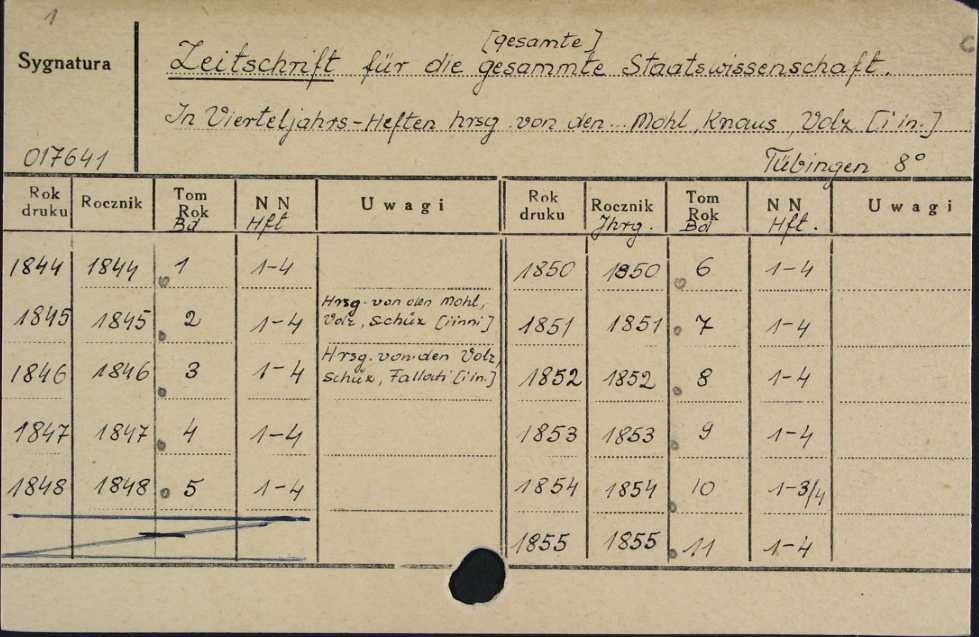 1
[gesamte]
Sygnatura Zeitschrift für die gesammte Staatswissenschaft.
In Vierteljahrs-Heften hrsg. von den... Mohl, Knaus, Volz [i in.]
017641 Tübingen 8°
Rok druku Rocznik Tom Rok Bd NN Hft Uwagi Rok druku Rocznik Jhrg. Tom Rok Bd NN Hft. Uwagi
1844 1844 1 1-4 1850 1850 6 1-4
1845 1845 2 1-4 Hrsg. von den Mohl, Volz, Schüz [i inni] 1851 1851 7 1-4
1846 1846 3 1-4 Hrsg. von den Volz, Schüz, Fallati [i in.] 1852 1852 8 1-4
1847 1847 4 1-4 1853 1853 9 1-4
1848 1848 5 1-4 1854 1854 10 1-3/4
1855 1855 11 1-4